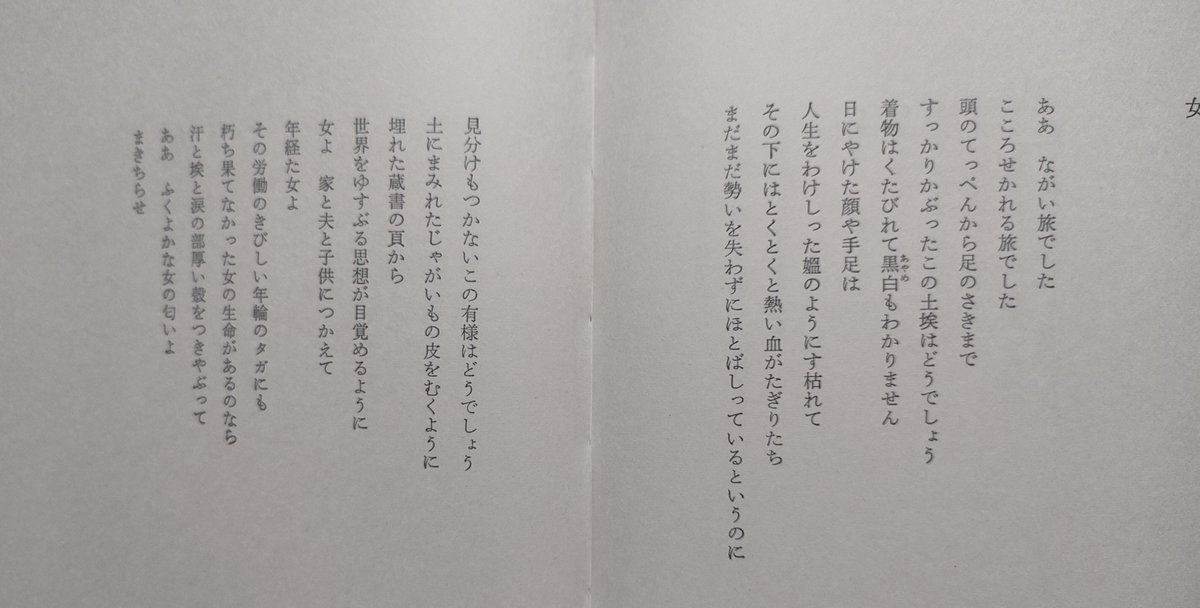 女
ああ　ながい旅でした
こころせかれる旅でした
頭のてっぺんから足のさきまで
すっかりかぶったこの土埃はどうでしょう
着物はくたびれて黒白もわかりません
あやめ
日にやけた顔や手足は
人生をわけしった媼のようにす枯れて
その下にはとくとくと熱い血がたぎりたち
まだまだ勢いを失わずにほとばしっているというのに
見分けもつかないこの有様はどうでしょう
土にまみれたじゃがいもの皮をむくように
埋れた蔵書の頁から
世界をゆすぶる思想が目覚めるように
女よ　家と夫と子供につかえて
年経た女よ
その労働のきびしい年輪のタガにも
朽ち果てなかった女の生命があるのなら
汗と埃と涙の部厚い殻をつきやぶって
ああ　ふくよかな女の匂いよ
まきちらせ